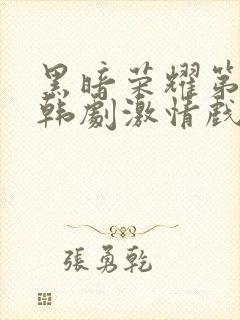 黑暗荣耀第
韩劇激情戲
張勇乾